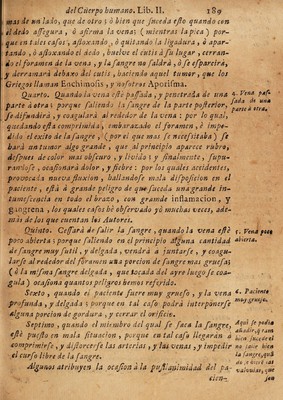 del Cuerpo humano. Lib. II. 189
mas de un lado, que de otro; ò bien que suceda esto quando con
el dedo assegura, ò afirma la vena; (mientras la pica) por-
que en tales casos, afloxando, ò quitando la ligadura, ò apar-
tando, ò afloxando el dedo, buelve el cutis à su lugar, cerran-
do el foramen de la vena, y la sangre no saldrà, ò se esparcirà,
y derramarà debaxo del cutis, haciendo aquel tumor, que los
Griegos llaman Enchimosis, y nosotros Aporisma.
Quarto. Quando la vena estè passada, y penetrada de una
parte à otra; porque saliendo la sangre de la parte posterior,
se difundirà, y coagularà al rededor de la vena: por lo qual,
quedando està comprimida, embarazado el foramen, è impe-
dido el exito de la sangre, (por el que mas se necessitaba) se
harà un tumor algo grande, que al principio aparece rubro,
despues de color mas obscuro, y livido; y finalmente, supu-
randose, ocasionarà dolor, y fiebre: por los quales accidentes,
provocada nueva fluxion, hallandose mala disposicion en el
paciente, està à grande peligro de que suceda una grande in-
tumescencia en todo el brazo, con grande inflamacion, y
gangrena, los quales casos hè observado yo muchas veces, ade-
màs de los que cuentan los Autores.
4. Vena pas-
sada de una
parte à otra.
Quinto. Cessarà de salir la sangre, quando la vena estè
poco abierta: porque saliendo en el principio alguna cantidad
de sangre muy sutil, y delgada, vendrà à juntarse, y coagu-
larse al rededor del foramen una porcion de sangre mas gruessa;
(ò la misma sangre delgada, que tocada del ayre luego se coa-
gula) ocasiona quantos peligros hemos referido.
5. Vena poco
abierta.
Sexto, quando el paciente fuere muy grueso, y la vena
profunda, y delgada: porque en tal caso podrà interponerse
alguna porcion de gordura, y cerrar el orificio.
6. Paciente
muy grueso.
Septimo, quando el miembro del qual se saca la sangre,
estè puesto en mala situacion, porque en tal caso llegaràn à
comprimirse, y distorcerse las arterias, y las venas, y impedir
el curso libre de la sangre.
Algunos atribuyen la ocasion à la pusilanimidad del pa-
cien-
Aqui se podia
añadir, q tam-
bien sucede el
no salir bien
la sangre,